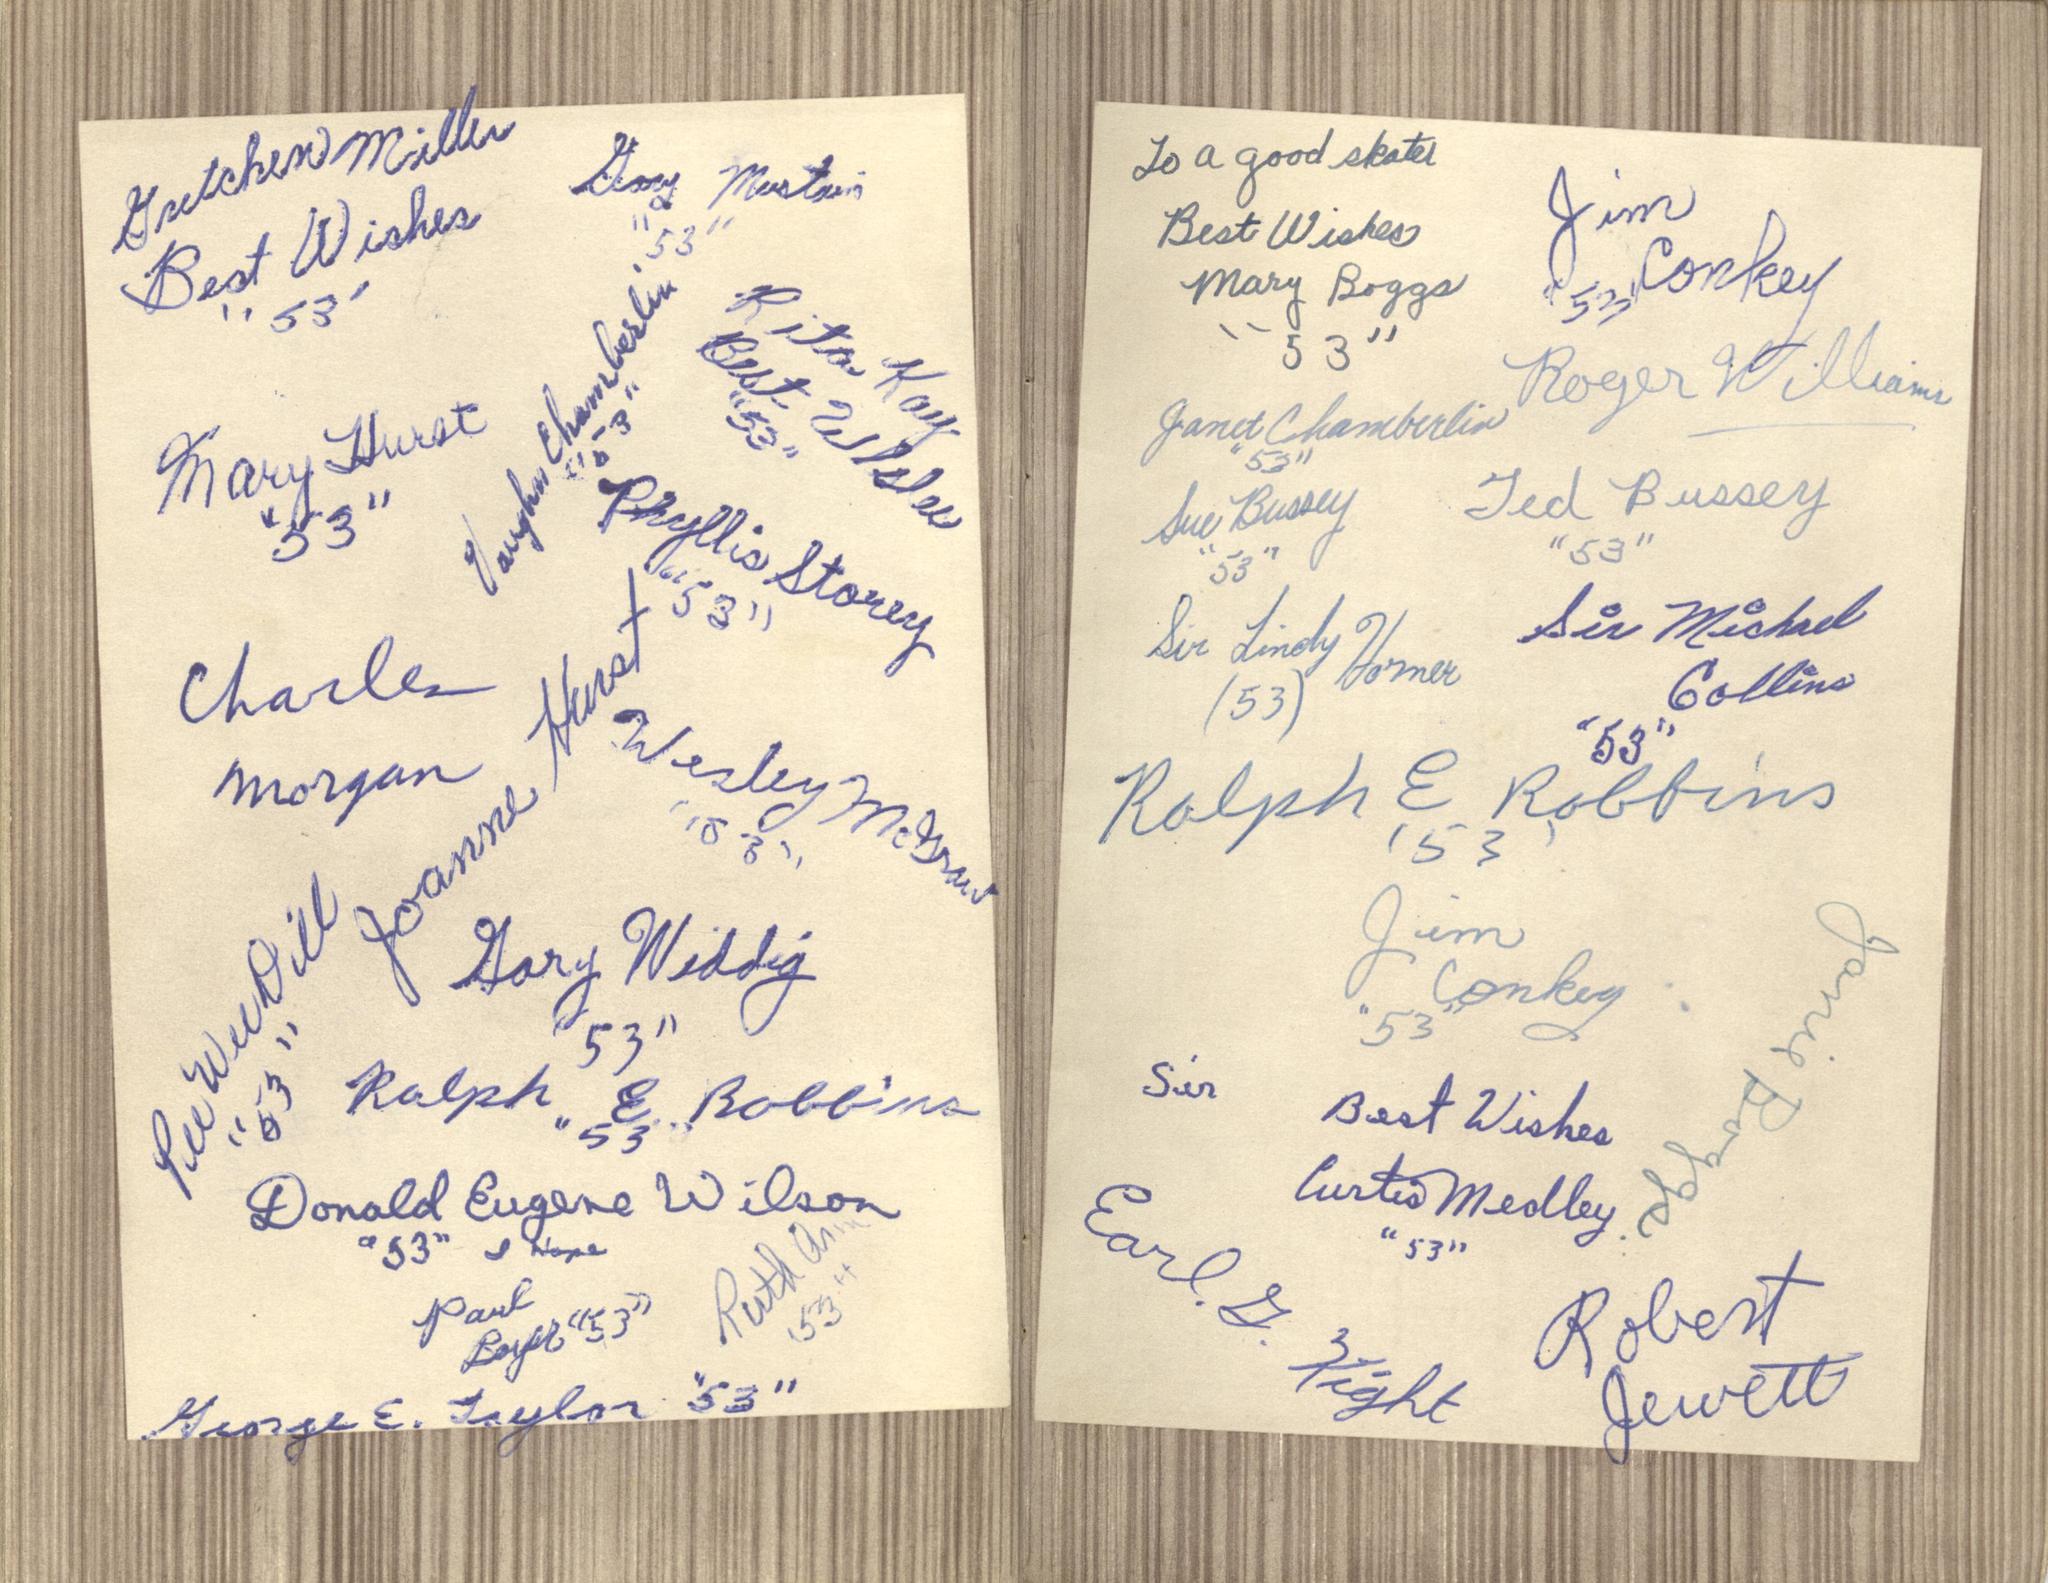 Gretchen Miller
Best Wishes
"53"
Gary Mustain
"53"
Vaughn Chamberlin
"53"
Rita Kay
Best Wishes
"53"
Mary Hurst
"53"
Phyllis Storey
"53"
Charles
Morgan
Joanne Hurst
Wesley McGraw
"53"
Pee Wee Dill
"53"
Gary Widdig
"53"
Ralph E Robbins
"53"
Donald Eugene Wilson
"53" I Hope
Paul
"53"
Ruth Ann
"53"
George E. Taylor "53"
To a good skater
Best Wishes
Mary Boggs
"53"
Jim
Conkey
"53"
Roger Williams
Janet Chamberlin
"53"
Sue Bussey
"53"
Ted Bussey
"53"
Sir Lindy Horner
(53)
Sir Michael
Collins
"53"
Ralph E Robbins
'53'
Jim
Conkey
"53"
Janie Boggs
Sir
Best Wishes
Curtis Medley
"53"
Earl. G.
Robert
Jewett